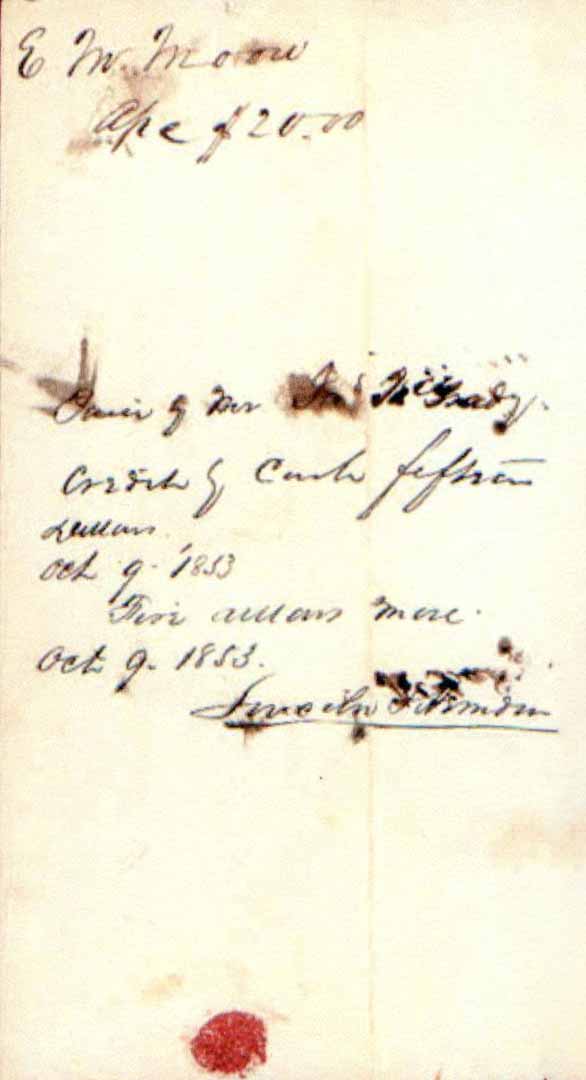 E W. Moore
$20.00
of Mr Jn° McGrady.
Credit of Cash fifteen
dollars.
Oct 9. 1853
Five dollars more.
Oct 9. 1853.
Lincoln